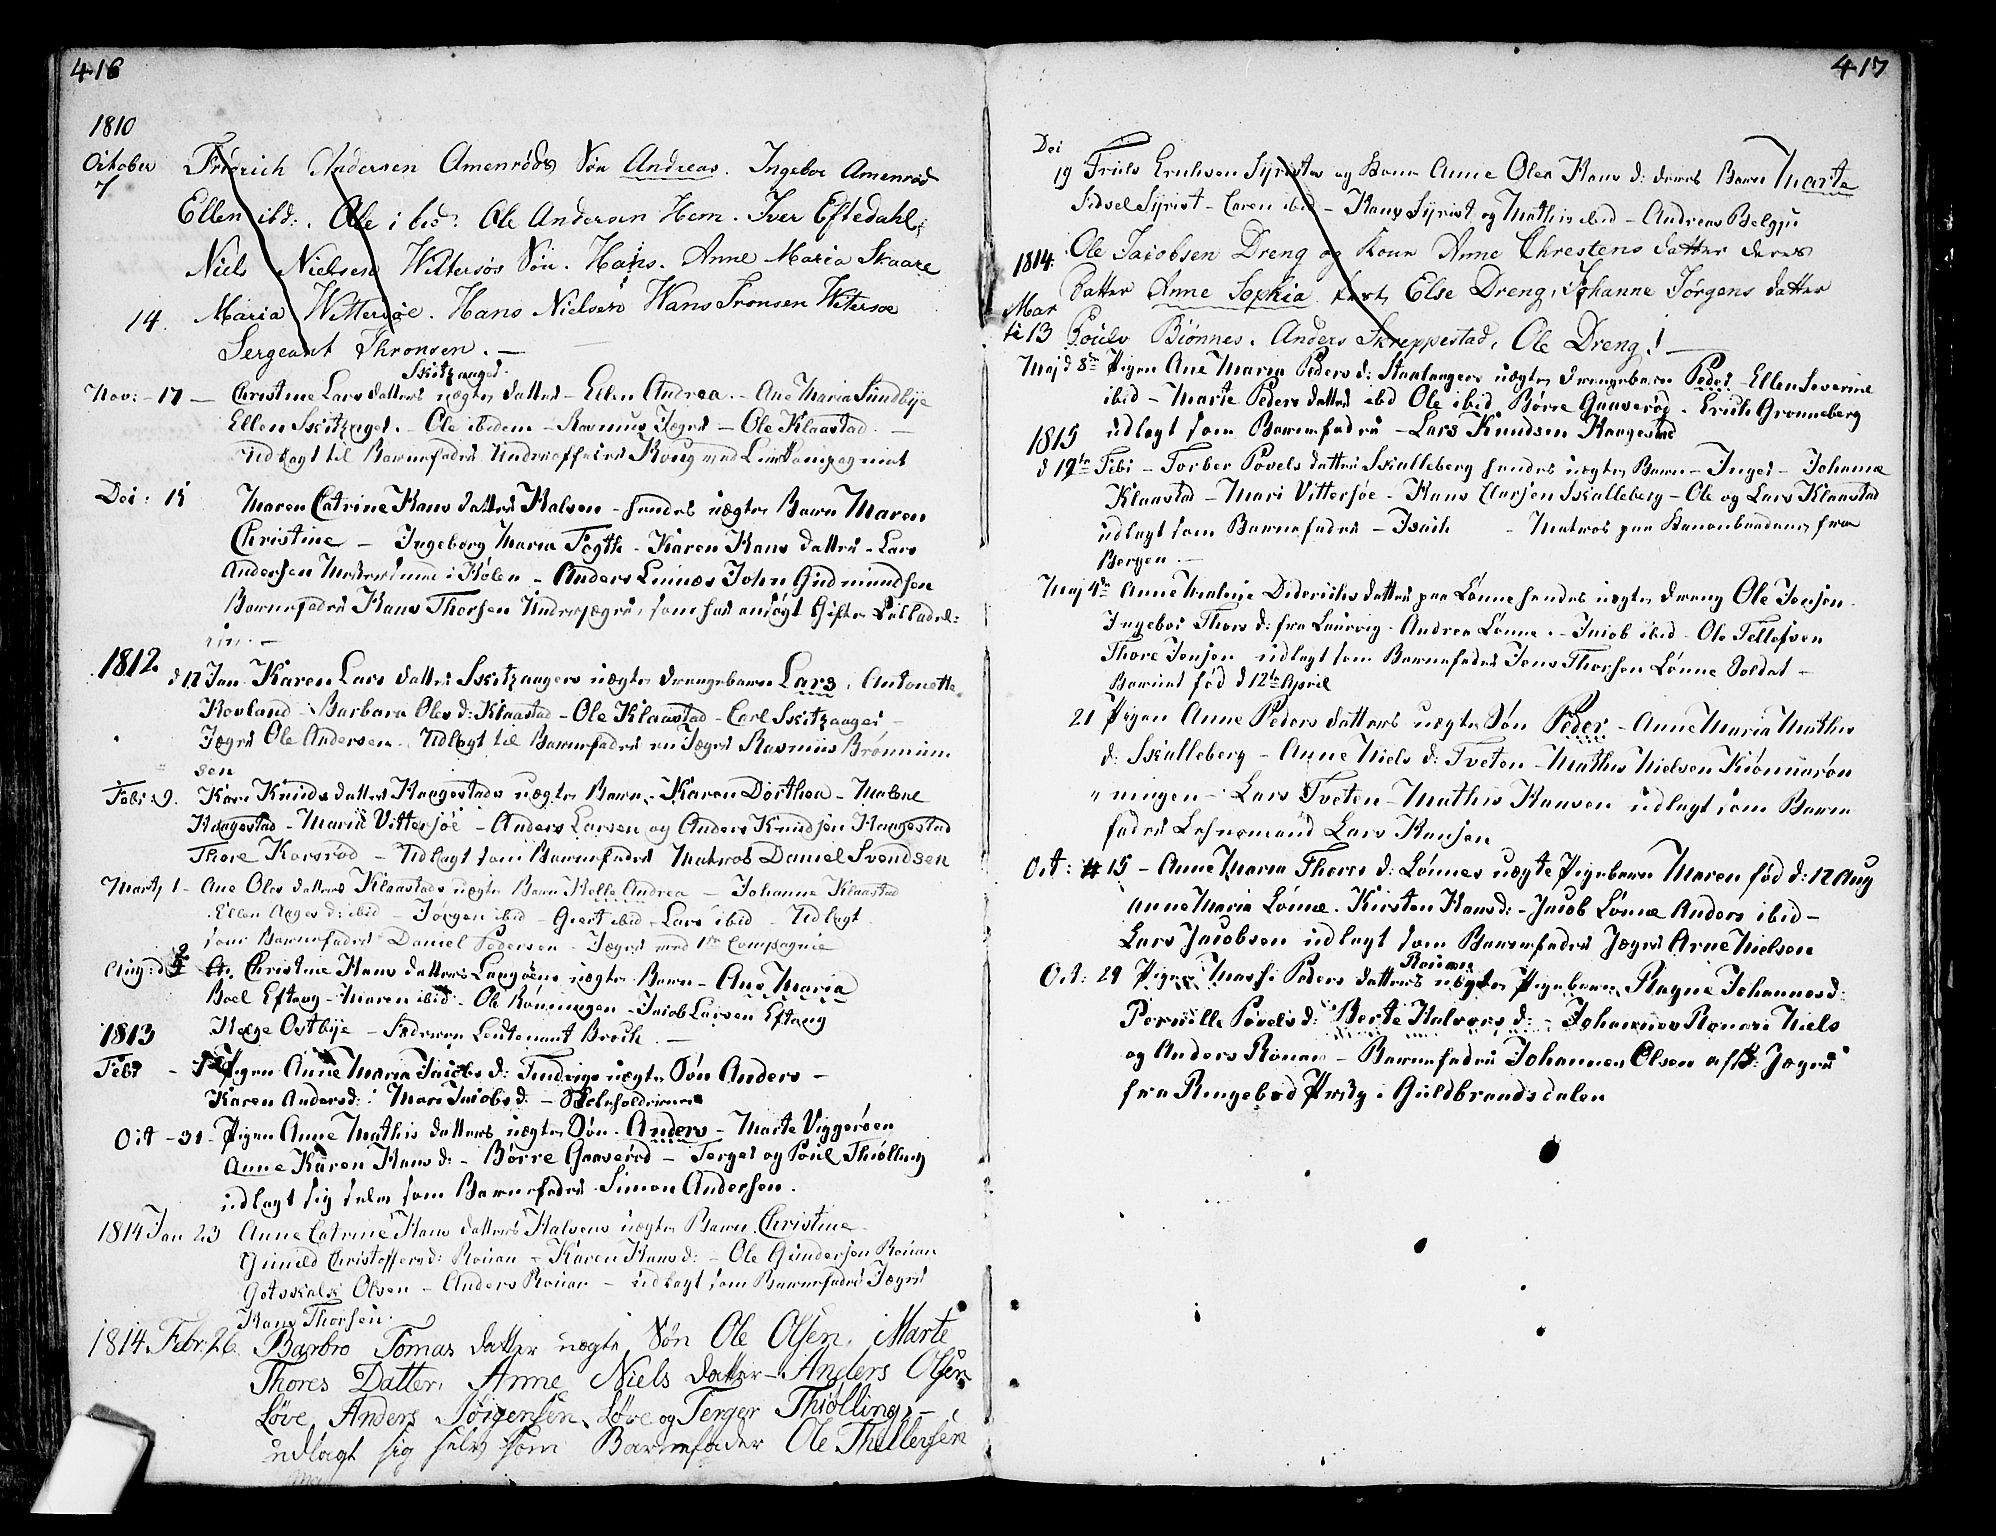 416
1810
October
7
Friderich Andersen Amenrøds Søn Andreas. Ingebor Amenrød
Ellen ibd: Ole ibid: Ole Andersen Hem. Iver Eftedahl
Niels Nielsen Wittersøs Søn. Hans. Anne Maria Skaare
14. Maria Wittersøe. Hans Nielsen Hans Tronsen Wittersøe
Sergeant Thronsen.
Skitzager
Nov: - 17 - Christine Lars datters uægte datter - Ellen Andrea. - Ane Maria Sundbye
Ellen Skitzager. - Ole ibidem - Rasmus Jæger - Ole Klaastad. -
udlagt til Barnefader Underofficer Koug med
Dec: 15 Maren Catrine Hans datter Halsen - hendes uægte Barn Maren
Christine - Ingeborg Maria Fogth - Karen Hans datter - Lars
Andersen i Holen - Anders Linnæs John Gudmundsen
Barnefader Hans Thorsen Underjæger, som har
1812 d 12 Jan. Karen Lars datter Skitzagers uægte drengebarn Lars. Antonette
Rovland - Barbara Oles d: Klaastad - Ole Klaastad - Carl Skitzager -
Jæger Ole Andersen. Udlagt til Barnefader en Jæger Rasmus Brønnim
sen
Febr: 9. Kari Knuds datter Haagestads uægte Barn - Karen Dorthea - Malene
Haagestad - Marie Vittersøe - Anders Larsen og Anders Knudsen Haagestad
Thore Korsrød - Udlagt som Barnefader Matros Daniel Svendsen
Marty 1 - Ane Oles datter Klaastads uægte Barn Helle Andrea - Johanne Klaastad
Ellen Aages d: ibid - Jørgen ibid - Giert ibid - Lars ibid - Udlagt
som Barnefader Daniel Pedersen - Jæger ved 1ste Compagnie
Aug: d Christine Hans datters Langøens uægte Barn - Ane Maria
Boel Eftang - Maren ibid - Ole Rönningen - Jacob Larsen Eftang
1813 Helge Ostbye - Faderen Leutenant Broch. -
Febr - Pigen Anne Maria Jacobs d: Tindvigs uægte Søn Anders -
Karen Anders d: Mari Jacobs d. -
Oct - 31 - Pigen Anne Mathis datters uægte Søn - Anders - Marte Viggersen
Anne Karen Hans d: - Börre Gaaserød - Terger og Poul Thiølling
udlagt sig selv som Barnefader Simon Andersen.
1814 Jan 23 Anne Catrine Hans datters Halsens uægte Barn Christine
Gunild Christoffers d: Rouan - Karen Hans d: - Ole Gundersen Rouan
Gotskalk Olsen - Anders Rouan - udlagt som Barnefader Jæger
Hans Thorsen.
1814 Febr. 26. Barbro Tomas datter uægte Søn Ole Olsen. Marte
Thores Datter, Anne Niels datter - Anders Olsen
Løve, Anders Jörgensen, Løve og Terger Thiølling, -
udlagt sig selv som Barnefader Ole Thellefsen
417
Dec
19 Friels Erichsen Syristes og Kone Anne Olea Hans d: deres Barn Marte
Sidsel Syrist - Caren ibid - Hans Syrist og Mathis ibid - Andreas Belgju
1814. Ole Jacobsen Dreng og Kone Anne Chrestens datter deres
Datter Anne Sophia. Else Dreng, Johanne Jörgens datter
Mar
ti 13 Poulv Biønnes. Anders Skreppestad, Ole Dreng!
Maj d 8de Pigen Ane Maria Peders d: Stavlangers uægte drengebarn Peder - Ellen Severine
ibid - Marte Peders datter ibid Ole ibid Børre Gaaserød. Erich Grønneberg
udlagt som Barnefader - Lars Knudsen Haagestad
1815
d 12te Febr - Torber Povels datter Skalleberg hendes uægte Barn - Inger - Johanne
Klaastad - Mari Vittersøe - Hans Clarsen Skalleberg - Ole og Lars Klaastad
udlagt som Barnefader - Isach - Matros paa fra
Bergen. -
Maj 4de Anne Malene Diderichs datter paa Lønne hendes uægte dreng Ole Jensen.
Ingebor Thors d: fra Laurvig - Andrea Lønne. - Jacob ibid - Ole Tellefsen
Thore Jensen udlagt som Barnefader Jens Thorsen Lønne Soldat -
Barnet fød d 12te April
21 Pigen Anne Peders datters uægte Søn Peder - Anne Maria Mathis
d: Skalleberg - Anne Niels d: Tveten - Mathis Nielsen Kiönnerøn
" ningen - Lars Tveten - Mathis Hansen udlagt som Barn
fader Lehnsmand Lars Hansen
Oct: 15 - Anne Maria Thores d: Lønnes uægte Pigebarn Maren fød d: 12 Aug
Anne Maria Lønne. Kirsten Hans d: - Jacob Lønne Anders ibid -
Lars Jacobsen udlagt som Barnefader Jæger Arne Nielsen
Rouan
Oct: 29 Pigen Marthe Peders datters uægte Pigebarn Ragne Johannes d:
Pernille Povels d: Berte Halvors d: - Johannes Rouan Niels
og Anders Rouan - Barnefader Johannes Olsen afsk: Jæger
fra Ringeboe Præstg. i Guldbrandsdalen